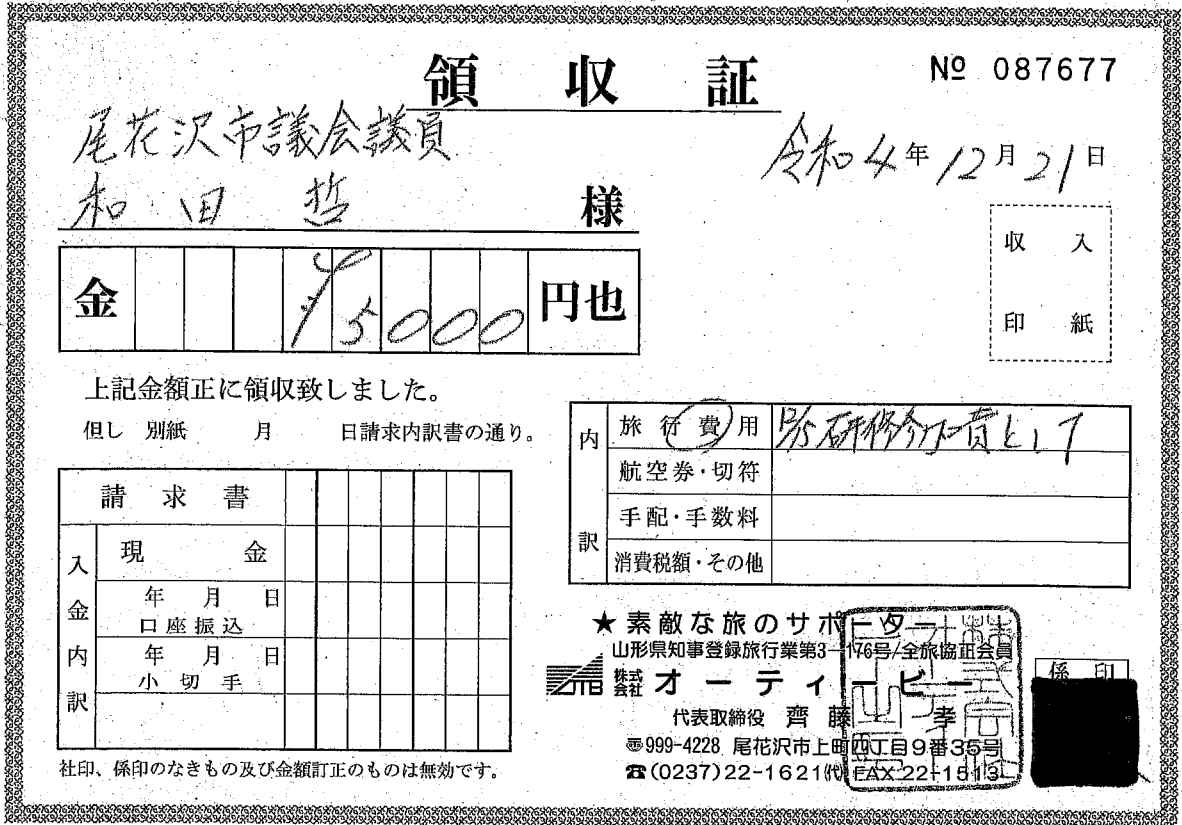 領収証
№ 087677
尾花沢市議会議員
和田 哲 様
令和4年12月21日
収入
印紙
金 ¥5000 円也
上記金額正に領収致しました。
但し 別紙 月 日請求内訳書の通り。
内訳
旅行費用 研修参加費として
航空券・切符
手配・手数料
消費税額・その他
請求書
入金内訳
現金
年 月 日
口座振込
年 月 日
小切手
社印、係印のなきもの及び金額訂正のものは無効です。
★素敵な旅のサポーター
山形県知事登録旅行業第3-176号/全旅協正会員
OTB 株式会社 オーティービー
代表取締役 齊藤 孝
〒999-4228 尾花沢市上町四丁目9番35号
☎(0237)22-1621(代) FAX 22-1513
係印